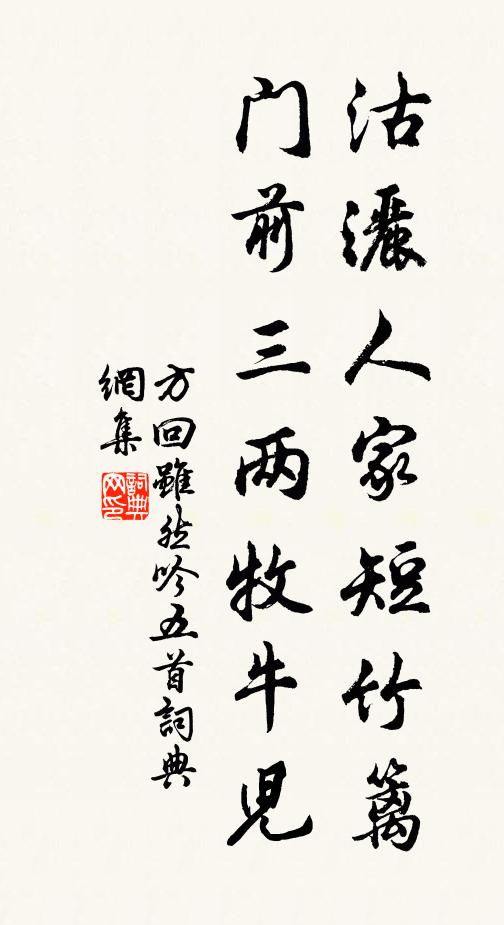 沽灑人家短竹篱
门前三两牧牛児
方回雖然吟五首詞典
網集
詞典
网印